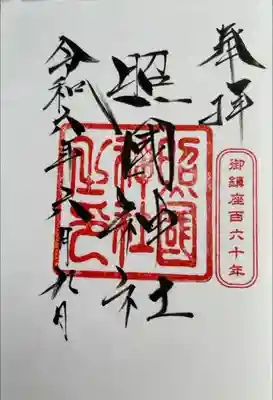 奉拝
御鎮座百六十年
照國神社
照國神社之印
令和六年六月九日